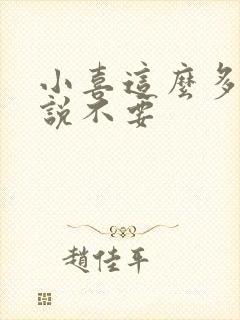 小喜這麼多
說不要
趙佳平